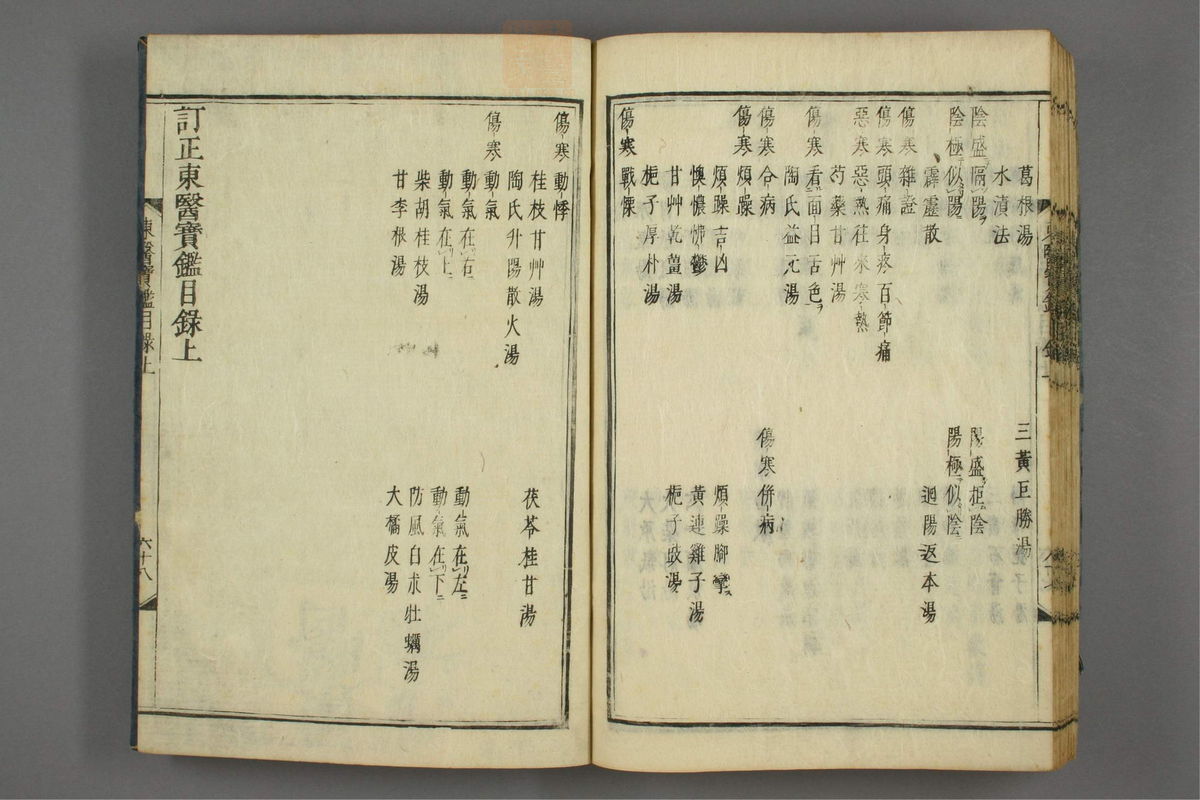 葛根湯　三黃巨勝湯
水漬法
陰盛隔陽　陽盛拒陰
陰極似陽　陽極似陰
霹靂散　迴陽返本湯
傷寒雜證
傷寒頭痛身疼百節痛
惡寒惡熱往來寒熱
芍藥甘艸湯
傷寒看面目舌色
陶氏益元湯
傷寒合病　傷寒併病
傷寒煩躁
煩躁吉凶　煩躁脚攣
懊憹怫鬱　黃連雞子湯
甘艸乾薑湯　梔子豉湯
梔子厚朴湯
傷寒戰慄
傷寒動悸
桂枝甘艸湯　茯苓桂甘湯
陶氏升陽散火湯
傷寒動氣
動氣在右　動氣在左
動氣在上　動氣在下
柴胡桂枝湯　防風白朮牡蠣湯
甘李根湯　大橘皮湯
訂正東醫寶鑑目錄上
東醫寶鑑目錄上
六十八